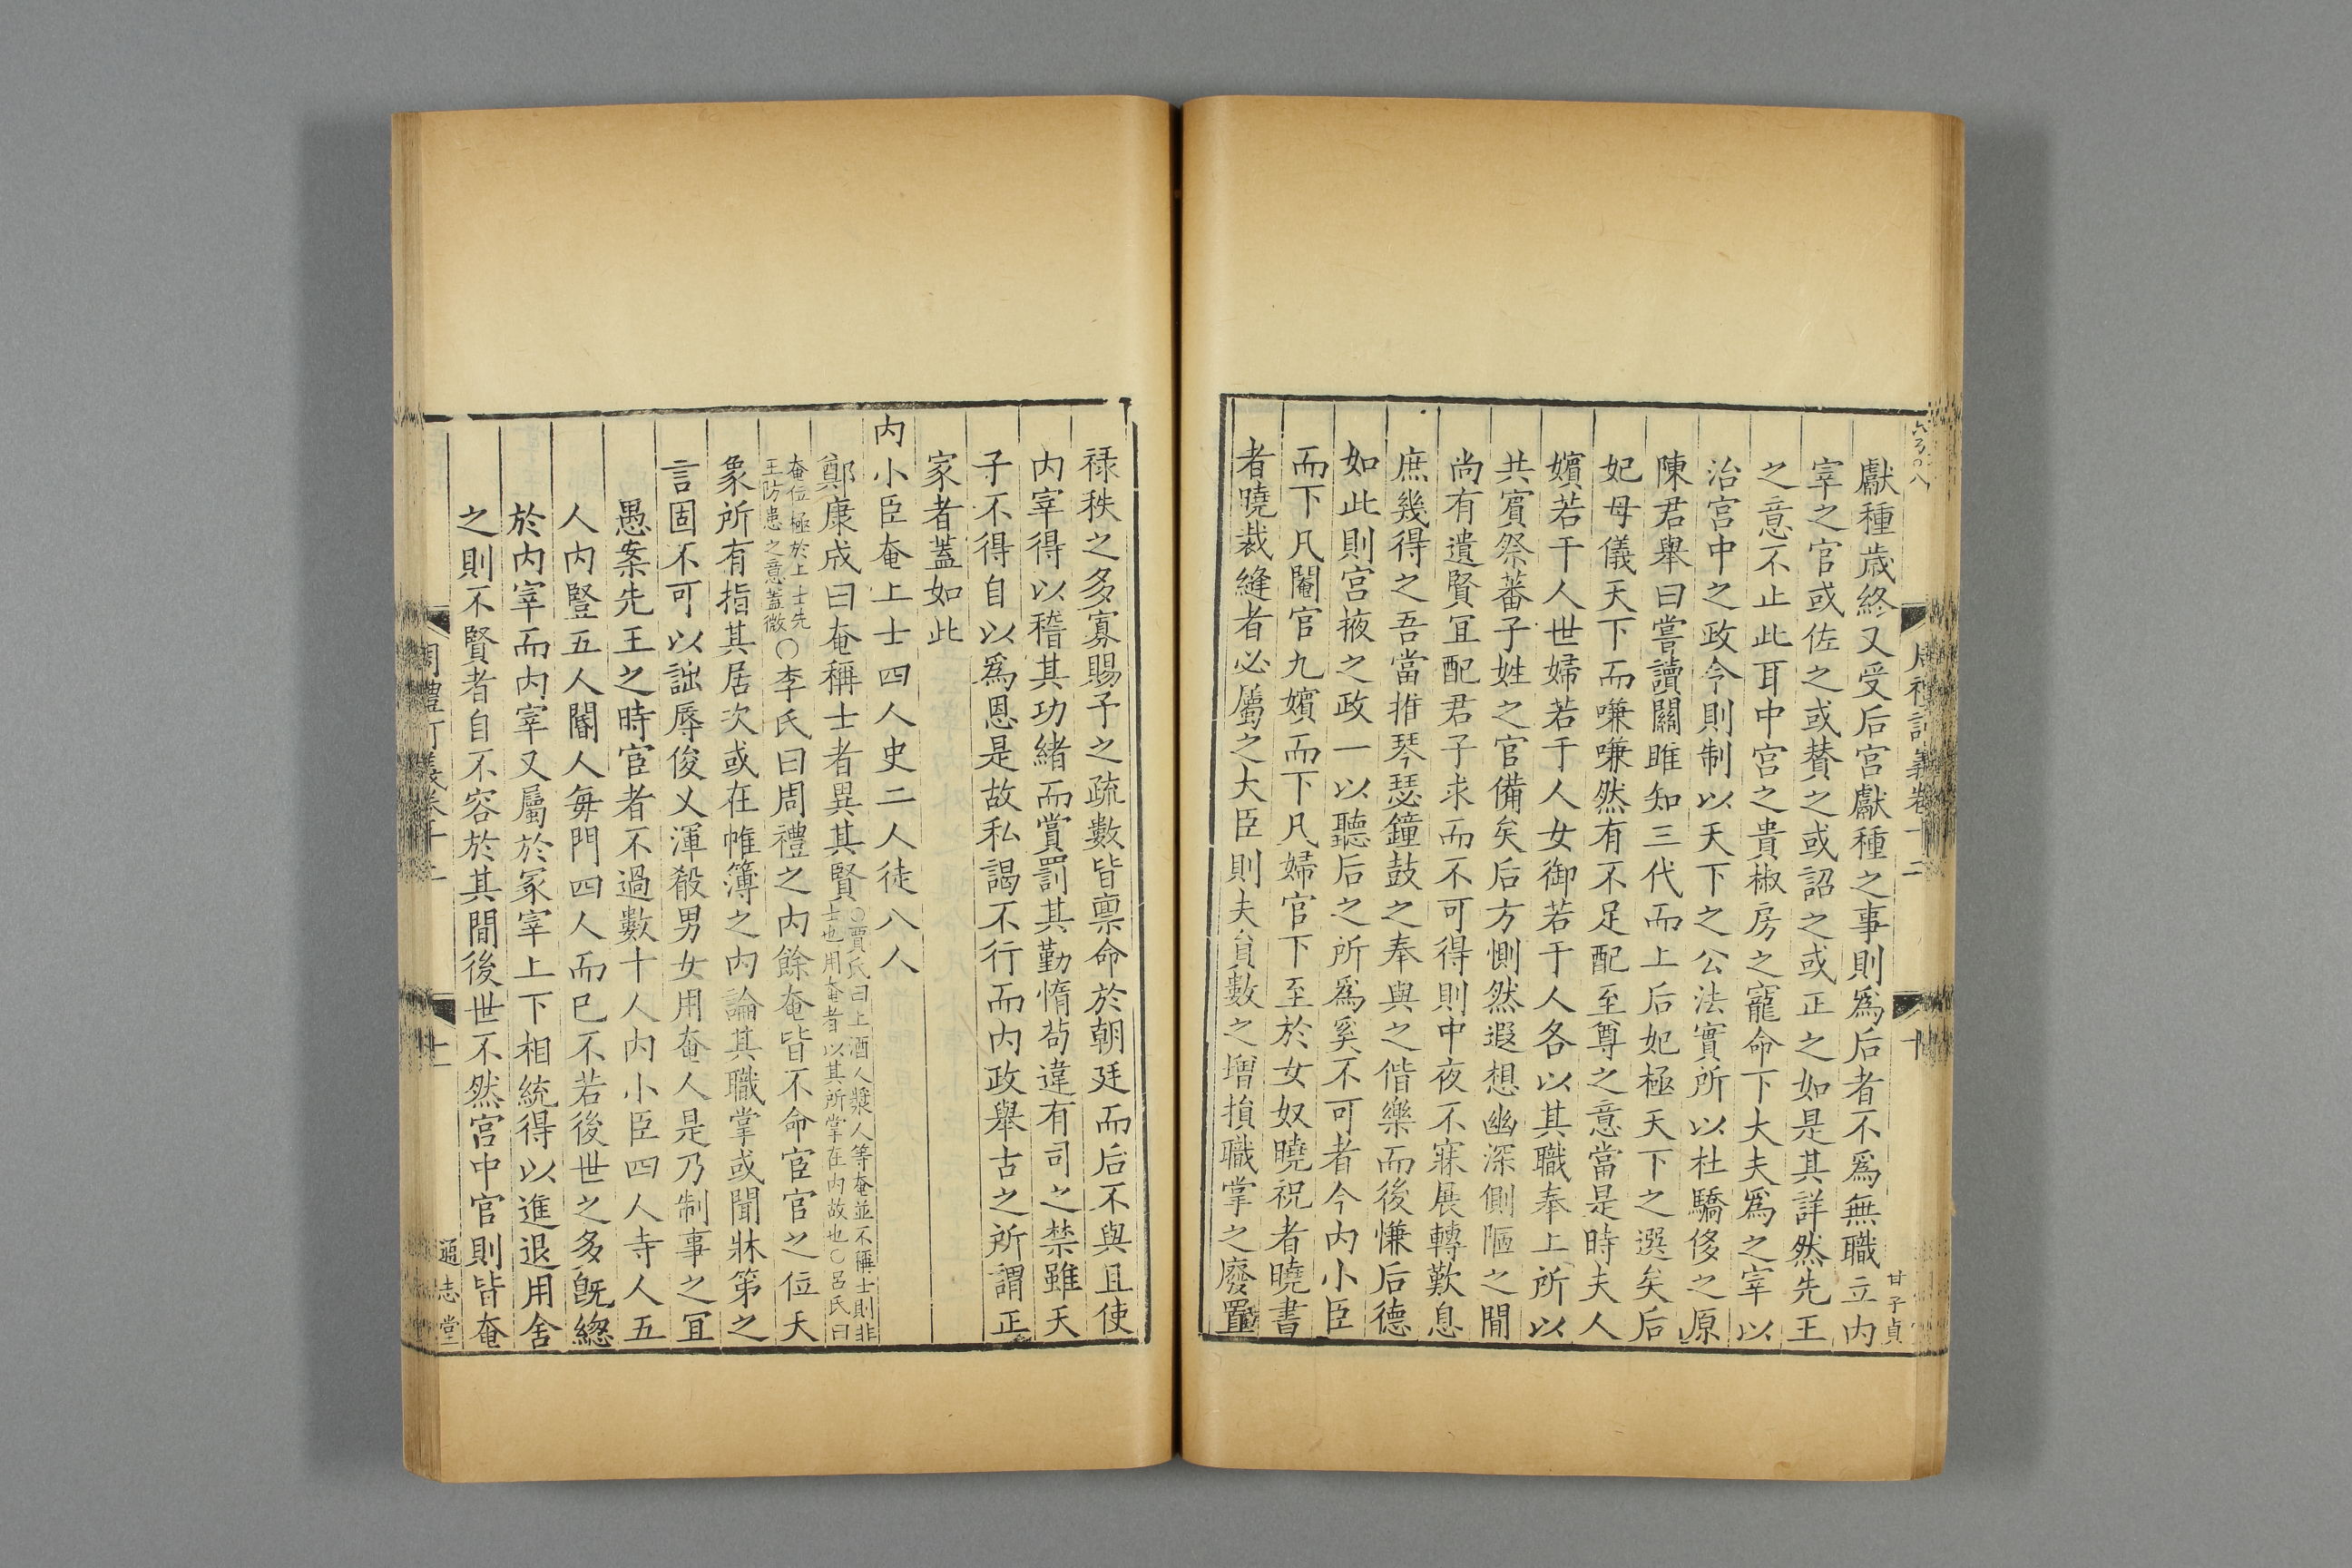 獻種歲終又受后宮獻種之事則爲后者不爲無職立內
宰之官或佐之或賛之或詔之或正之如是其詳然先王
之意不止此耳中宮之貴椒房之寵命下大夫爲之宰以
治宮中之政令則制以天下之公法實所以杜驕侈之原
陳君舉曰嘗讀關雎知三代而上后妃極天下之選矣后
妃母儀天下而嗛嗛然有不足配至尊之意當是時夫人
嬪若干人世婦若干人女御若干人各以其職奉上所以
共賓祭蕃子姓之官備矣后方惻然遐想幽深側陋之間
尚有遺賢冝配君子求而不可得則中夜不寐展轉歎息
庶幾得之吾當推琴瑟鐘鼓之奉與之偕樂而後慊后德
如此則宮掖之政一以聽后之所爲奚不可者今內小臣
而下凡閹官九嬪而下凡婦官下至於女奴曉祝者曉書
者曉裁縫者必屬之大臣則夫負數之增損職掌之廢置
甘子貞
禄秩之多寡賜予之疏數皆禀命於朝廷而后不與且使
內宰得以稽其功緒而賞罰其勤惰茍違有司之禁雖天
子不得自以爲恩是故私謁不行而內政舉古之所謂正
家者蓋如此
內小臣奄上士四人史二人徒八人
鄭康成曰奄稱士者異其賢○賈氏曰上酒人漿人等奄並不稱士則非
士也用奄者以其所掌在內故也○呂氏曰
奄位極於上士先
王防患之意蓋微○李氏曰周禮之內餘奄皆不命宦官之位天
象所有指其居次或在帷簿之內論其職掌或聞牀第之
言固不可以詘辱俊乂渾殽男女用奄人是乃制事之冝
愚案先王之時宦者不過數十人內小臣四人寺人五
人內豎五人閽人每門四人而已不若後世之多旣緫
於內宰而內宰又屬於冢宰上下相統得以進退用舍
之則不賢者自不容於其間後世不然宮中官則皆奄
通志堂